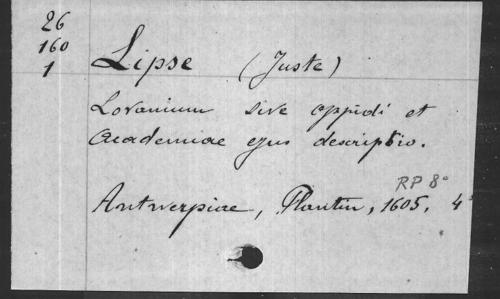 26
160
1
Lipse (Juste)
Lovanium sive oppidi et
Academiae ejus descriptio.
RP 8°
Antwerpiae, Plantin, 1605, 4°